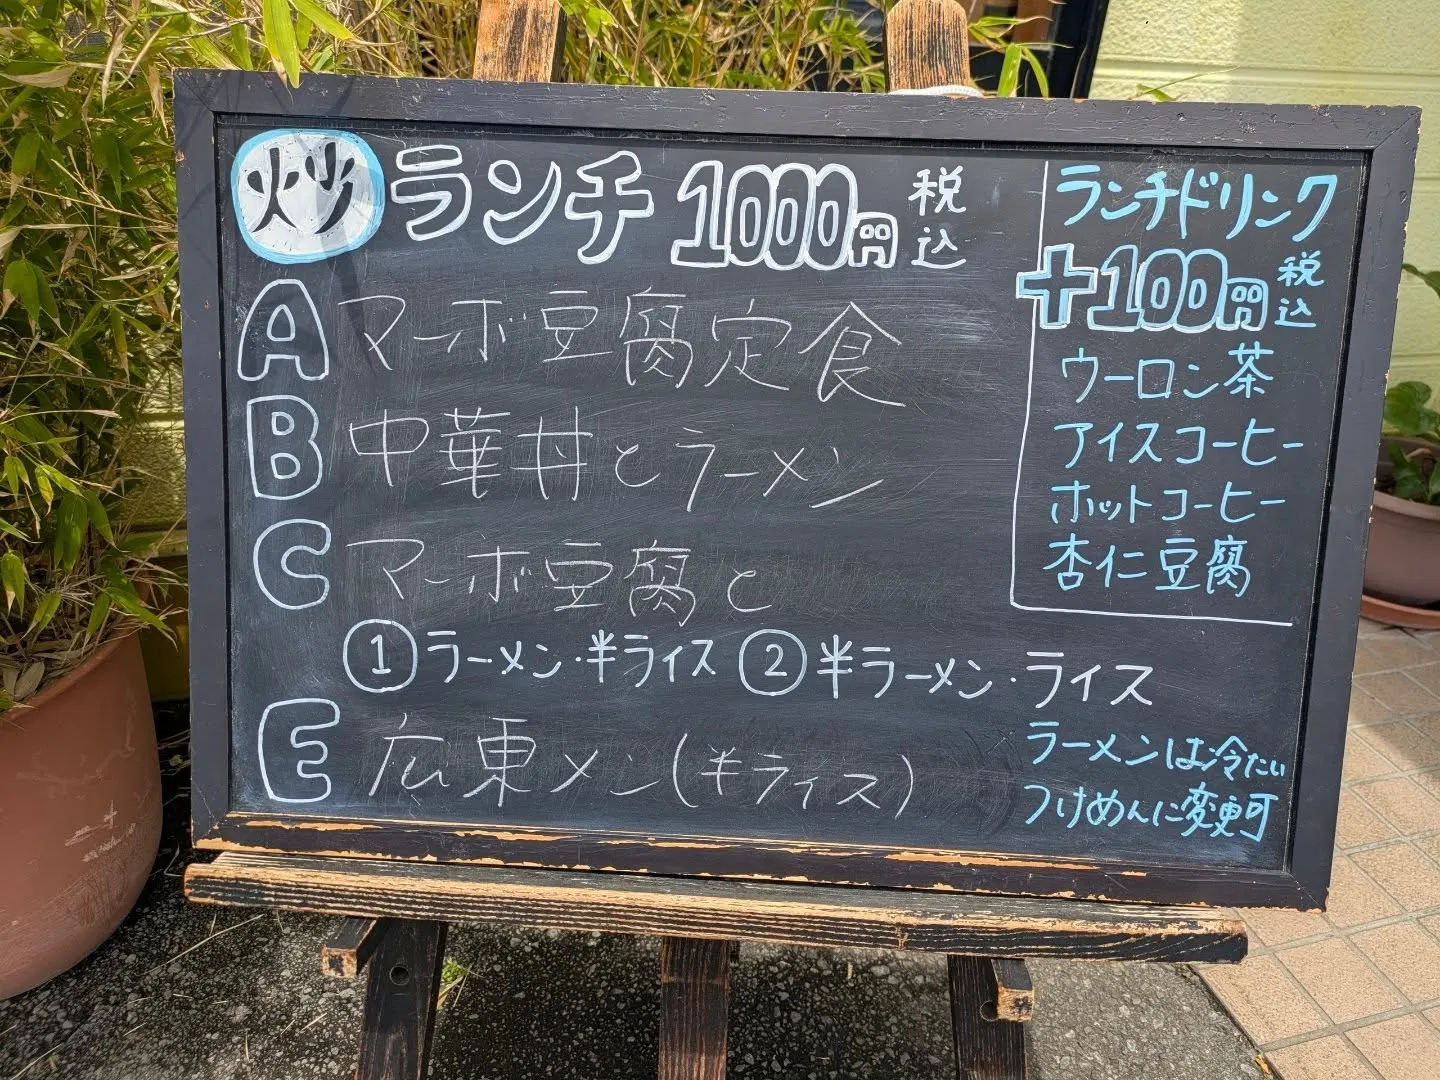 炒 ランチ 1000円 税込
A マーボ豆腐定食
B 中華丼とラーメン
C マーボ豆腐と
①ラーメン・半ライス ②半ラーメン・ライス
E 広東メン(半ライス)
ランチドリンク
+100円 税込
ウーロン茶
アイスコーヒー
ホットコーヒー
杏仁豆腐
ラーメンは冷たい
つけめんに変更可